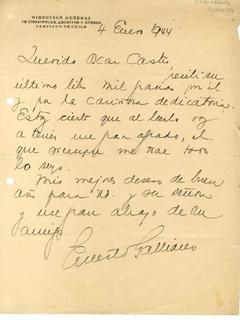 DIRECCION GENERAL
DE BIBLIOTECAS, ARCHIVOS Y MUSEOS
SANTIAGO DE CHILE
4 Enero 944
Querido Oscar Castro,
recibí su
último libro mil gracias por él
y por la cariñosa dedicatoria.
Estoy cierto que al leerlo voy
a tener un gran agrado, el
que siempre me trae todo
lo suyo.
Mis mejores deseos de buen
año para Ud. y su señora
y un gran abrazo de su
amigo
Ernesto Galliano